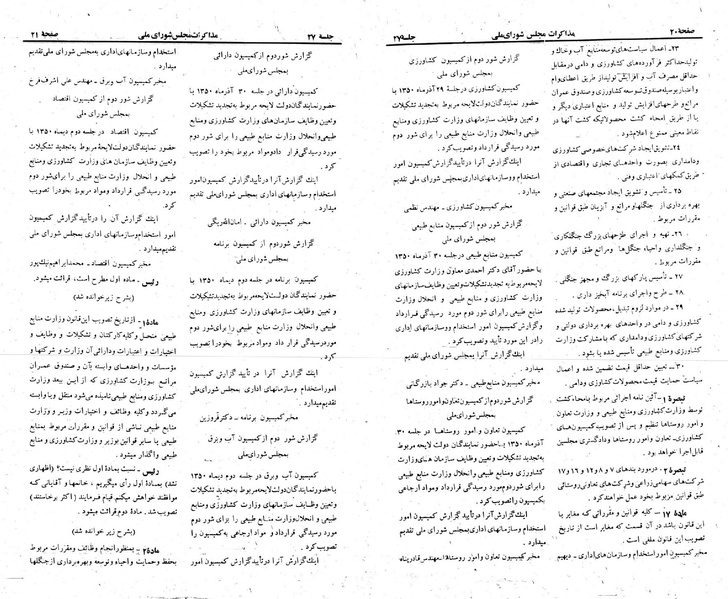 صفحهٔ ۲۰ مذاکرات مجلس شورای ملی جلسه ۲۷
۲۳- اعمال سیاست‌های توسعه منابع آب وخاک و
تولید حداکثر فرآورده‌های کشاورزی و دامی در مقابل
حداقل مصرف آب و افزایش تولید از طریق اعطای وام
و اعتبار بوسیله صندوق توسعه کشاورزی و صندوق عمران
مراتع و طرحهای افزایش تولید و منابع اعتباری دیگر و
یا از طریق امحاء کشت محصولاتیکه کشت آنها در
نقاط معینی ممنوع اعلام بشود.
۲۴- تشویق ایجاد شرکت‌های خصوصی کشاورزی
و دامداری بصورت واحدهای تجاری و اقتصادی از
طریق کمکهای اعتباری وفنی.
۲۵ - تأسیس و تشویق ایجاد مجتمعهای صنعتی و
بهره برداری از جنگلها و مراتع و آبزیان طبق قوانین و
مقررات مربوط.
۲۶ - تهیه و اجرای طرحهای بزرگ جنگلکاری
و جنگلداری و احیاء جنگل‌ها و مراتع طبق قوانین و
مقررات مربوط.
۲۷ - تأسیس پارکهای بزرگ و مجهز جنگلی.
۲۸ - طرح و اجرای برنامه آبخیز داری.
۲۹ - در موارد لزوم تبدیل، محصولات تولید شده
کشاورزی و دامی در واحدهای بهره برداری دولتی و
شرکتهای کشاورزی و دامداری که با مشارکت وزارت
کشاورزی و منابع طبیعی تأسیس شده یا بشود.
۳۰ - تعیین حداقل قیمت تضمین شده و اعمال
سیاست حمایت قیمت محصولات کشاورزی و دامی.
تبصره ۱- آئین نامه اجرائی مربوط بامحاء کشت
توسط وزارت کشاورزی و منابع طبیعی و وزارت تعاون
و امور روستاها تنظیم و پس از تصویب کمیسیونهای
کشاورزی- تعاون و امور روستاها و دادگستری مجلسین
بموقع اجرا گذارده میشود.
تبصره ۲- در مورد بندهای ۷ و ۸ و ۱۲ و ۱۶ و ۱۷
شرکتهای سهامی زراعی و شرکت‌های تعاونی روستائی
طبق قوانین مربوط بخود عمل خواهند کرد.
مادهٔ ۱۷ - کلیه قوانین و مقرراتی که مغایر با
این قانون باشد در آن قسمت که مغایر است از تاریخ
تصویب این قانون ملغی است.
مخبر کمیسیون امور استخدام و سازمان‌های اداری- دیهیم
گزارش شور دوم از کمیسیون کشاورزی
بمجلس شورای ملی
کمیسیون کشاورزی در جلسه ۲۹ آذر ماه ۱۳۵۰ با
حضور نمایندگان دولت لایحه مربوط به تجدید تشکیلات
و تعیین وظایف سازمان‌های وزارت کشاورزی و منابع
طبیعی و انحلال وزارت منابع طبیعی را برای شور دوم
مورد رسیدگی قرار داد و تصویب کرد.
اینک گزارش آنرا در تأیید گزارش کمیسیون امور
استخدام و سازمان‌های اداری بمجلس شورای ملی تقدیم
میدارد.
مخبر کمیسیون کشاورزی - مهندس نظمی
گزارش شور دوم از کمیسیون منابع طبیعی
بمجلس شورای ملی
کمیسیون منابع طبیعی در جلسه ۳۰ آذر ماه ۱۳۵۰
با حضور آقای دکتر احمدی معاون وزارت کشاورزی
لایحه مربوط به تجدید تشکیلات و تعیین وظایف سازمان‌های
وزارت کشاورزی و منابع طبیعی و انحلال وزارت
منابع طبیعی را برای شور دوم مورد رسیدگی قرار داد و
گزارش کمیسیون امور استخدام و سازمانهای اداری
را در این مورد تأیید و تصویب کرد.
اینک گزارش آنرا بمجلس شورای ملی تقدیم
میدارد.
مخبر کمیسیون منابع طبیعی - دکتر جواد بازرگانی
گزارش شور دوم از کمیسیون تعاون و امور روستاها
بمجلس شورای ملی
کمیسیون تعاون و امور روستاها در جلسه ۳۰
آذر ماه ۱۳۵۰ با حضور نمایندگان دولت لایحه مربوط
به تجدید تشکیلات و تعیین وظایف سازمان های وزارت
کشاورزی و منابع طبیعی و انحلال وزارت منابع طبیعی را
برای شور دوم مورد رسیدگی قرار داد و مواد ارجاعی
بکمیسیون را تصویب کرد.
اینک گزارش آنرا در تأیید گزارش کمیسیون امور
استخدام و سازمان‌های اداری بمجلس شورای ملی تقدیم
میدارد.
مخبر کمیسیون تعاون و امور روستاها- مهندس قادرپناه
جلسه ۲۷ مذاکرات مجلس شورای ملی صفحهٔ ۲۱
گزارش شور دوم از کمیسیون دارائی
بمجلس شورای ملی
کمیسیون دارائی در جلسه ۳۰ آذر ماه ۱۳۵۰ با
حضور نمایندگان دولت لایحه مربوط به تجدید تشکیلات
و تعیین وظایف سازمان های وزارت کشاورزی و منابع
طبیعی و انحلال وزارت منابع طبیعی را برای شور دوم
مورد رسیدگی قرار داد و مواد مربوط بخود را تصویب
کرد.
اینک گزارش آنرا در تأیید گزارش کمیسیون امور
استخدام و سازمانهای اداری بمجلس شورای ملی تقدیم
میدارد.
مخبر کمیسیون دارائی - امان‌الله ریگی
گزارش شور دوم از کمیسیون برنامه
بمجلس شورای ملی
کمیسیون برنامه در جلسه دوم دیماه ۱۳۵۰ با حضور
نمایندگان دولت لایحه مربوط به تجدید تشکیلات و تعیین
وظایف سازمان‌های وزارت کشاورزی و منابع
طبیعی و انحلال وزارت منابع طبیعی را برای شور دوم
مورد رسیدگی قرار داد و مواد مربوط بخود را تصویب
کرد.
اینک گزارش آنرا در تأیید گزارش کمیسیون
امور استخدام و سازمانهای اداری بمجلس شورای ملی
تقدیم میدارد.
مخبر کمیسیون برنامه - دکتر قزوین
گزارش شور دوم از کمیسیون آب و برق
بمجلس شورای ملی
کمیسیون آب و برق در جلسه دوم دیماه ۱۳۵۰
با حضور نمایندگان دولت لایحه مربوط به تجدید تشکیلات
و تعیین وظایف سازمانهای وزارت کشاورزی و منابع
طبیعی و انحلال وزارت منابع طبیعی را برای شور دوم
مورد رسیدگی قرار داد و مواد ارجاعی به کمیسیون را
تصویب کرد.
اینک گزارش آنرا در تأیید گزارش کمیسیون امور
استخدام و سازمانهای اداری به مجلس شورای ملی تقدیم
میدارد.
مخبر کمیسیون آب و برق - مهندس علی اشرف فرخ
گزارش شور دوم از کمیسیون اقتصاد
بمجلس شورای ملی
کمیسیون اقتصاد در جلسه دوم دیماه ۱۳۵۰ با
حضور نمایندگان دولت لایحه مربوط به تجدید تشکیلات
و تعیین وظایف سازمان های وزارت کشاورزی و منابع
طبیعی و انحلال وزارت منابع طبیعی را برای شور دوم
مورد رسیدگی قرار داد و مواد مربوط بخود را تصویب
کرد.
اینک گزارش آن را در تأیید گزارش کمیسیون
امور استخدام و سازمانهای اداری بمجلس شورای ملی
تقدیم میدارد.
مخبر کمیسیون اقتصاد - محمد ابراهیم نیک‌پور
رئیس - ماده اول مطرح است، قرائت میشود.
(بشرح زیر خوانده شد)
مادهٔ ۱- از تاریخ تصویب این قانون وزارت منابع
طبیعی منحل و کلیه کارکنان و تشکیلات و وظایف و
اختیارات و اعتبارات و دارائی آن وزارت و شرکتها و
مؤسسات و واحدهای وابسته بآن و صندوق عمران
مراتع بوزارت کشاورزی که از این ببعد وزارت
کشاورزی و منابع طبیعی نامیده میشود منتقل و یا وابسته
میگردد و کلیه وظائف و اختیارات وزیر و وزارت
منابع طبیعی ناشی از قوانین و مقررات مربوط بمنابع
طبیعی یا سایر قوانین بوزیر و وزارت کشاورزی و منابع
طبیعی واگذار میشود.
رئیس - بمادهٔ اول نظری نیست؟ (اظهاری
نشد) بمادهٔ اول رأی میگیریم، خانمها و آقایانی که
موافقند خواهش میکنم قیام فرمایند (اکثر برخاستند)
تصویب شد. مادهٔ دوم قرائت میشود.
(بشرح زیر خوانده شد)
مادهٔ ۲- بمنظور انجام وظائف و مقررات مربوط
بحفظ و حمایت و احیاء و توسعه و بهره برداری از جنگلها